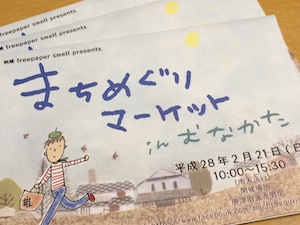 freepaper smell presents
freepaper smell presents
地域 freepaper smell presents
まちめぐり
マーケット
in むなかた
平成28年2月21日(日
10:00〜15:30